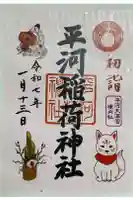 初詣
平河稲荷神社
令和七年
一月十三日